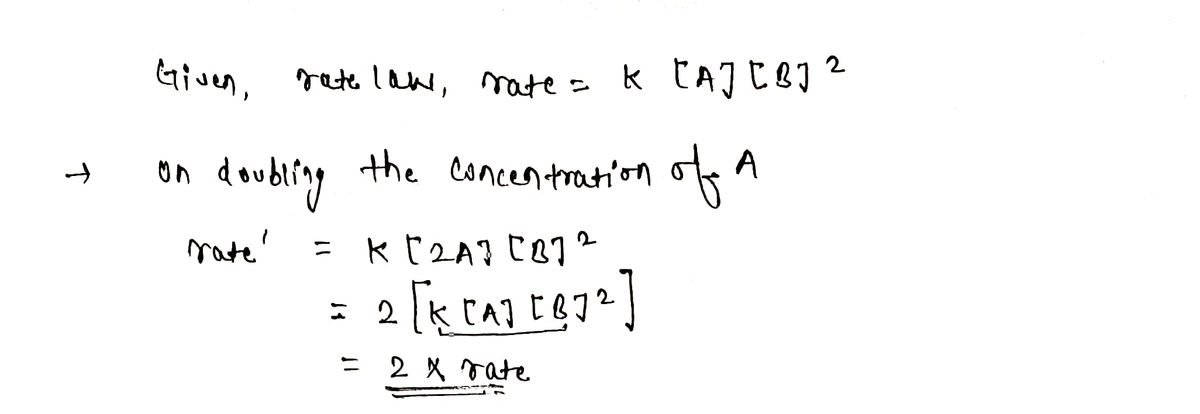 Given, rate law, rate = K [A] [B] 2
→ on doubling the concentration of A
rate' = K [2A] [B] 2
= 2 [K [A] [B] 2]
= 2 X rate